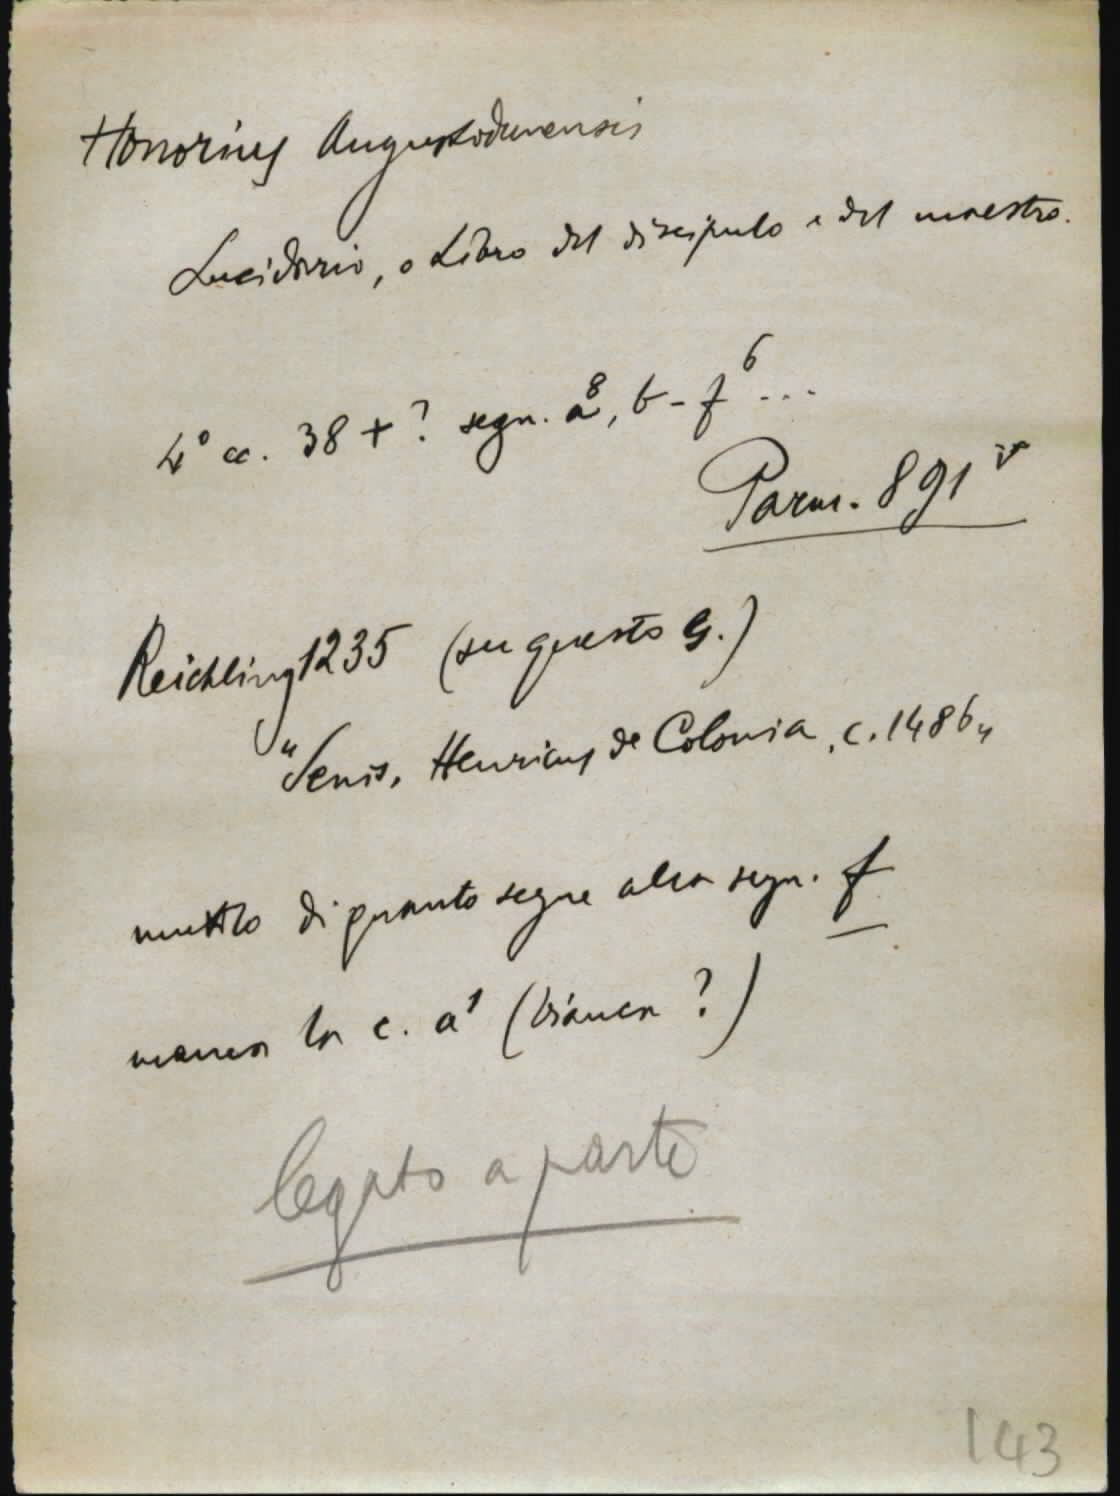 Honorius Augustodunensis
Lucidario, o Libro del discipulo e del maestro.
4° cc. 38 + ? segn. a⁸, b - f⁶ ...
Parm. 891
Reichling 1235 (su questo G.)
"Senis, Henricus de Colonia, c. 1486"
mutilo di quanto segue alla segn. f
manca la c. a¹ (bianca ?)
legato a parte
143